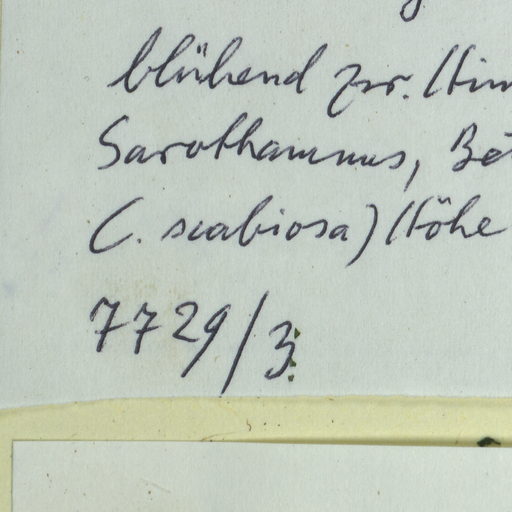 blühend zw. Him
Sarothamnus, Bet
C. scabiosa) Höhe
7729/3: